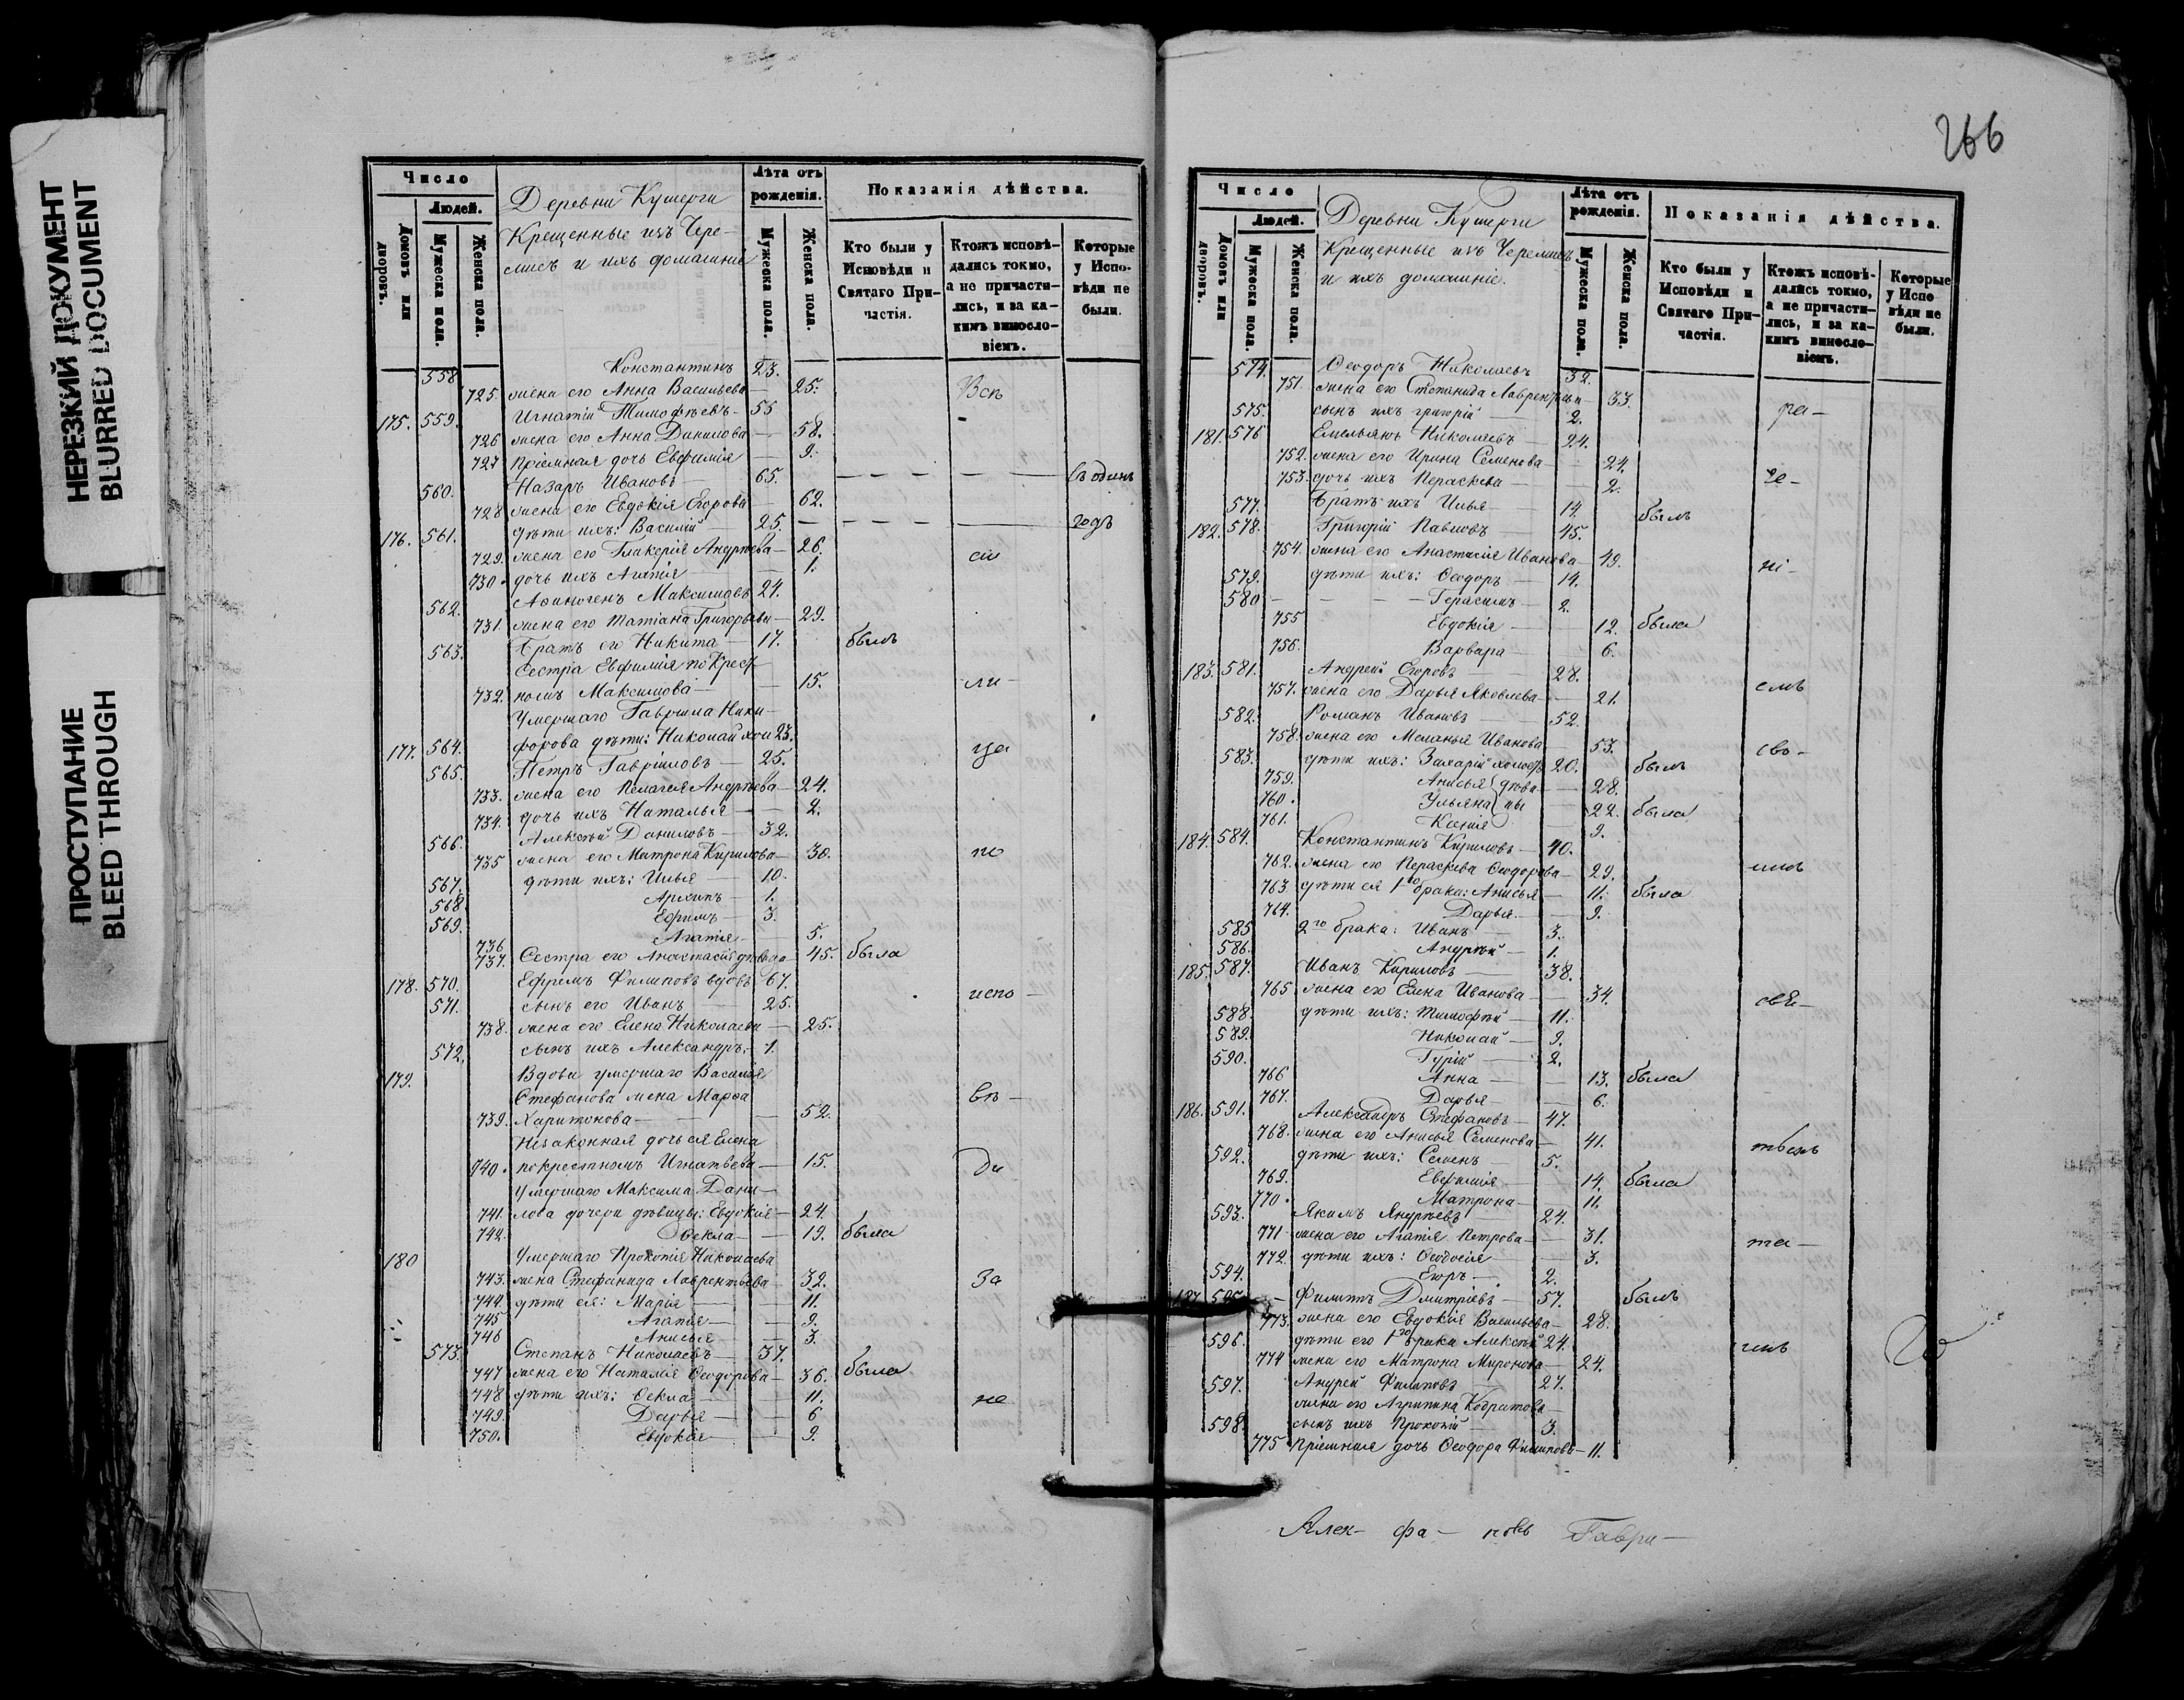 НЕРЕЗКИЙ ДОКУМЕНТ
BLURRED DOCUMENT
ПРОСТУПАНИЕ
BLEED THROUGH
Число
Людей.
Домовъ или дворовъ.
Мужеска пола.
Женска пола.
Деревни Кушерги
Крещенные изъ Чере-
мисъ и ихъ домашніе
Лѣта отъ рожденія.
Мужеска пола.
Женска пола.
Показанія дѣйства.
Кто были у Исповѣди и Святаго Причастія.
Ктожъ исповѣдались токмо, а не причастились, и за какимъ винословіемъ.
Которые у Исповѣди не были.
558 Константинъ 23.
725. жена его Анна Васильева — 25. Всѣ
175. 559. Игнатій Тимофѣевъ — 55
726 жена его Анна Данилова — 58.
727 Пріемная дочь Евфимія — 9.
560. Назаръ Ивановъ — 65. — — — — въ одинъ
728 жена его Евдокія Егорова 62.
176. 561. дѣти ихъ: Василій — 25. — — — — годъ
729. жена его Гликерія Андрѣева — 26. сіи
730. дочь ихъ Агапія — 1.
562. Аѳиногенъ Максимовъ 24.
731. жена его Татіана Григорьева — 29.
563. Братъ его Никита — 17. былъ
Сестра Евфимія по Крест-
732. номъ Максимова — 15. ли —
Умершаго Гаврила Ники-
177. 564. форова дѣти: Николай хол 23. ца
565. Петръ Гавріиловъ — 25.
733. жена его Пелагея Андрѣева — 24.
734. дочь ихъ Наталья — 2.
566. Алексѣй Даниловъ — 32.
735 жена его Матрона Кирилова — 30. по
567. дѣти ихъ: Илья — 10.
568. Архипъ — 1.
569. Ефимъ — 3.
736 Агапія — 5.
737. Сестра его Анастасія дѣвица — 45. была
178. 570. Ефремъ Филиповъ вдовъ 67.
571. сынъ его Иванъ — 25. испо —
738. жена его Елена Николаева — 25.
572. сынъ ихъ Александръ — 1.
179. Вдова умершаго Василья
Стефанова жена Марѳа вѣ —
739. Харитонова — 52.
Незаконная дочь ея Елена
740. по крестномъ Игнатьева — 15. ди
Умершаго Максима Дани-
741. лова дочери дѣвицы: Евдокія — 24.
742. Ѳекла — 19. была
180 Умершаго Прокопія Николаева
743. жена Стефанида Лаврентьева — 32. За
744. дѣти ея: Марія — 11.
745 Агапія — 9.
746 Анисья — 3.
573. Степанъ Николаевъ — 37.
747 жена его Наталія Ѳеодорова — 36. была
748 дѣти ихъ: Ѳекла — 11. не
749. Дарья — 6
750. Евдокія — 9.
266
Число
Людей.
Домовъ или дворовъ.
Мужеска пола.
Женска пола.
Деревни Кушерги
Крещенные изъ Черемисъ
и ихъ домашніе.
Лѣта отъ рожденія.
Мужеска пола.
Женска пола.
Показанія дѣйства.
Кто были у Исповѣди и Святаго Причастія.
Ктожъ исповѣдались токмо, а не причастились, и за какимъ винословіемъ.
Которые у Исповѣди не были.
574. Ѳеодоръ Николаевъ 32.
751. жена его Степанида Лаврентьева — 33.
575. сынъ ихъ Григорій — 2. ра —
181. 576 Емельянъ Николаевъ — 24.
752. жена его Ирина Семенова — 24.
753. дочь ихъ Пераскева — 2. че —
577. Братъ ихъ Илья — 14. былъ
182. 578. Григорій Павловъ 45.
754. жена его Анастасія Иванова — 49. ні —
579. дѣти ихъ: Ѳеодоръ — 14.
580 — — — Герасимъ — 2.
755 Евдокія — 12. была
756. Варвара — 6.
183. 581. Андрей Егоровъ — 28.
757. жена его Дарья Яковлева — 21. емъ
582. Романъ Ивановъ — 52.
758. жена его Меланья Иванова 53. сво —
583. дѣти ихъ: Захарій холостъ 20. былъ
759. Анисья дѣви- — 28.
760. Ульяна цы — 22. была
761. Ксенія — 9.
184. 584. Константинъ Кириловъ — 40.
762. жена его Пераскева Ѳеодорова — 29. имъ
763 дѣти ея 1го брака: Анисья — 11. была
764. Дарья — 9.
585 2го брака: Иванъ — 3.
586. Андрѣй — 1.
185. 587. Иванъ Кириловъ — 38.
765 жена его Елена Иванова — 34. свѣ —
588. дѣти ихъ: Тимофѣй — 11.
589. Николай — 9.
590. Гурій — 2.
766 Анна — 13. была
767. Дарья — 6.
186. 591. Александръ Стефановъ — 47.
768. жена его Анисья Семенова — 41. тьемъ
592. дѣти ихъ: Семенъ — 5.
769. Евфимія — 14. была
770. Матрона — 11.
593. Якимъ Андрѣевъ — 24.
771 жена его Агапія Петрова — 31. та —
772 дѣти ихъ: Ѳеодосія — 3.
594. Егоръ — 2.
187. 595. Филипъ Дмитріевъ — 57. былъ
773. жена его Евдокія Васильева — 28.
596. дѣти его 1го брака Алексѣй 24.
774 жена его Матрона Миронова — 24.
597. Андрей Филиповъ — 27.
жена его Агрипина Кодратова —
598. сынъ ихъ Прокопій — 3.
775 Пріемная дочь Ѳеодора Филипова — 11.
Алек- фа- Гаври-